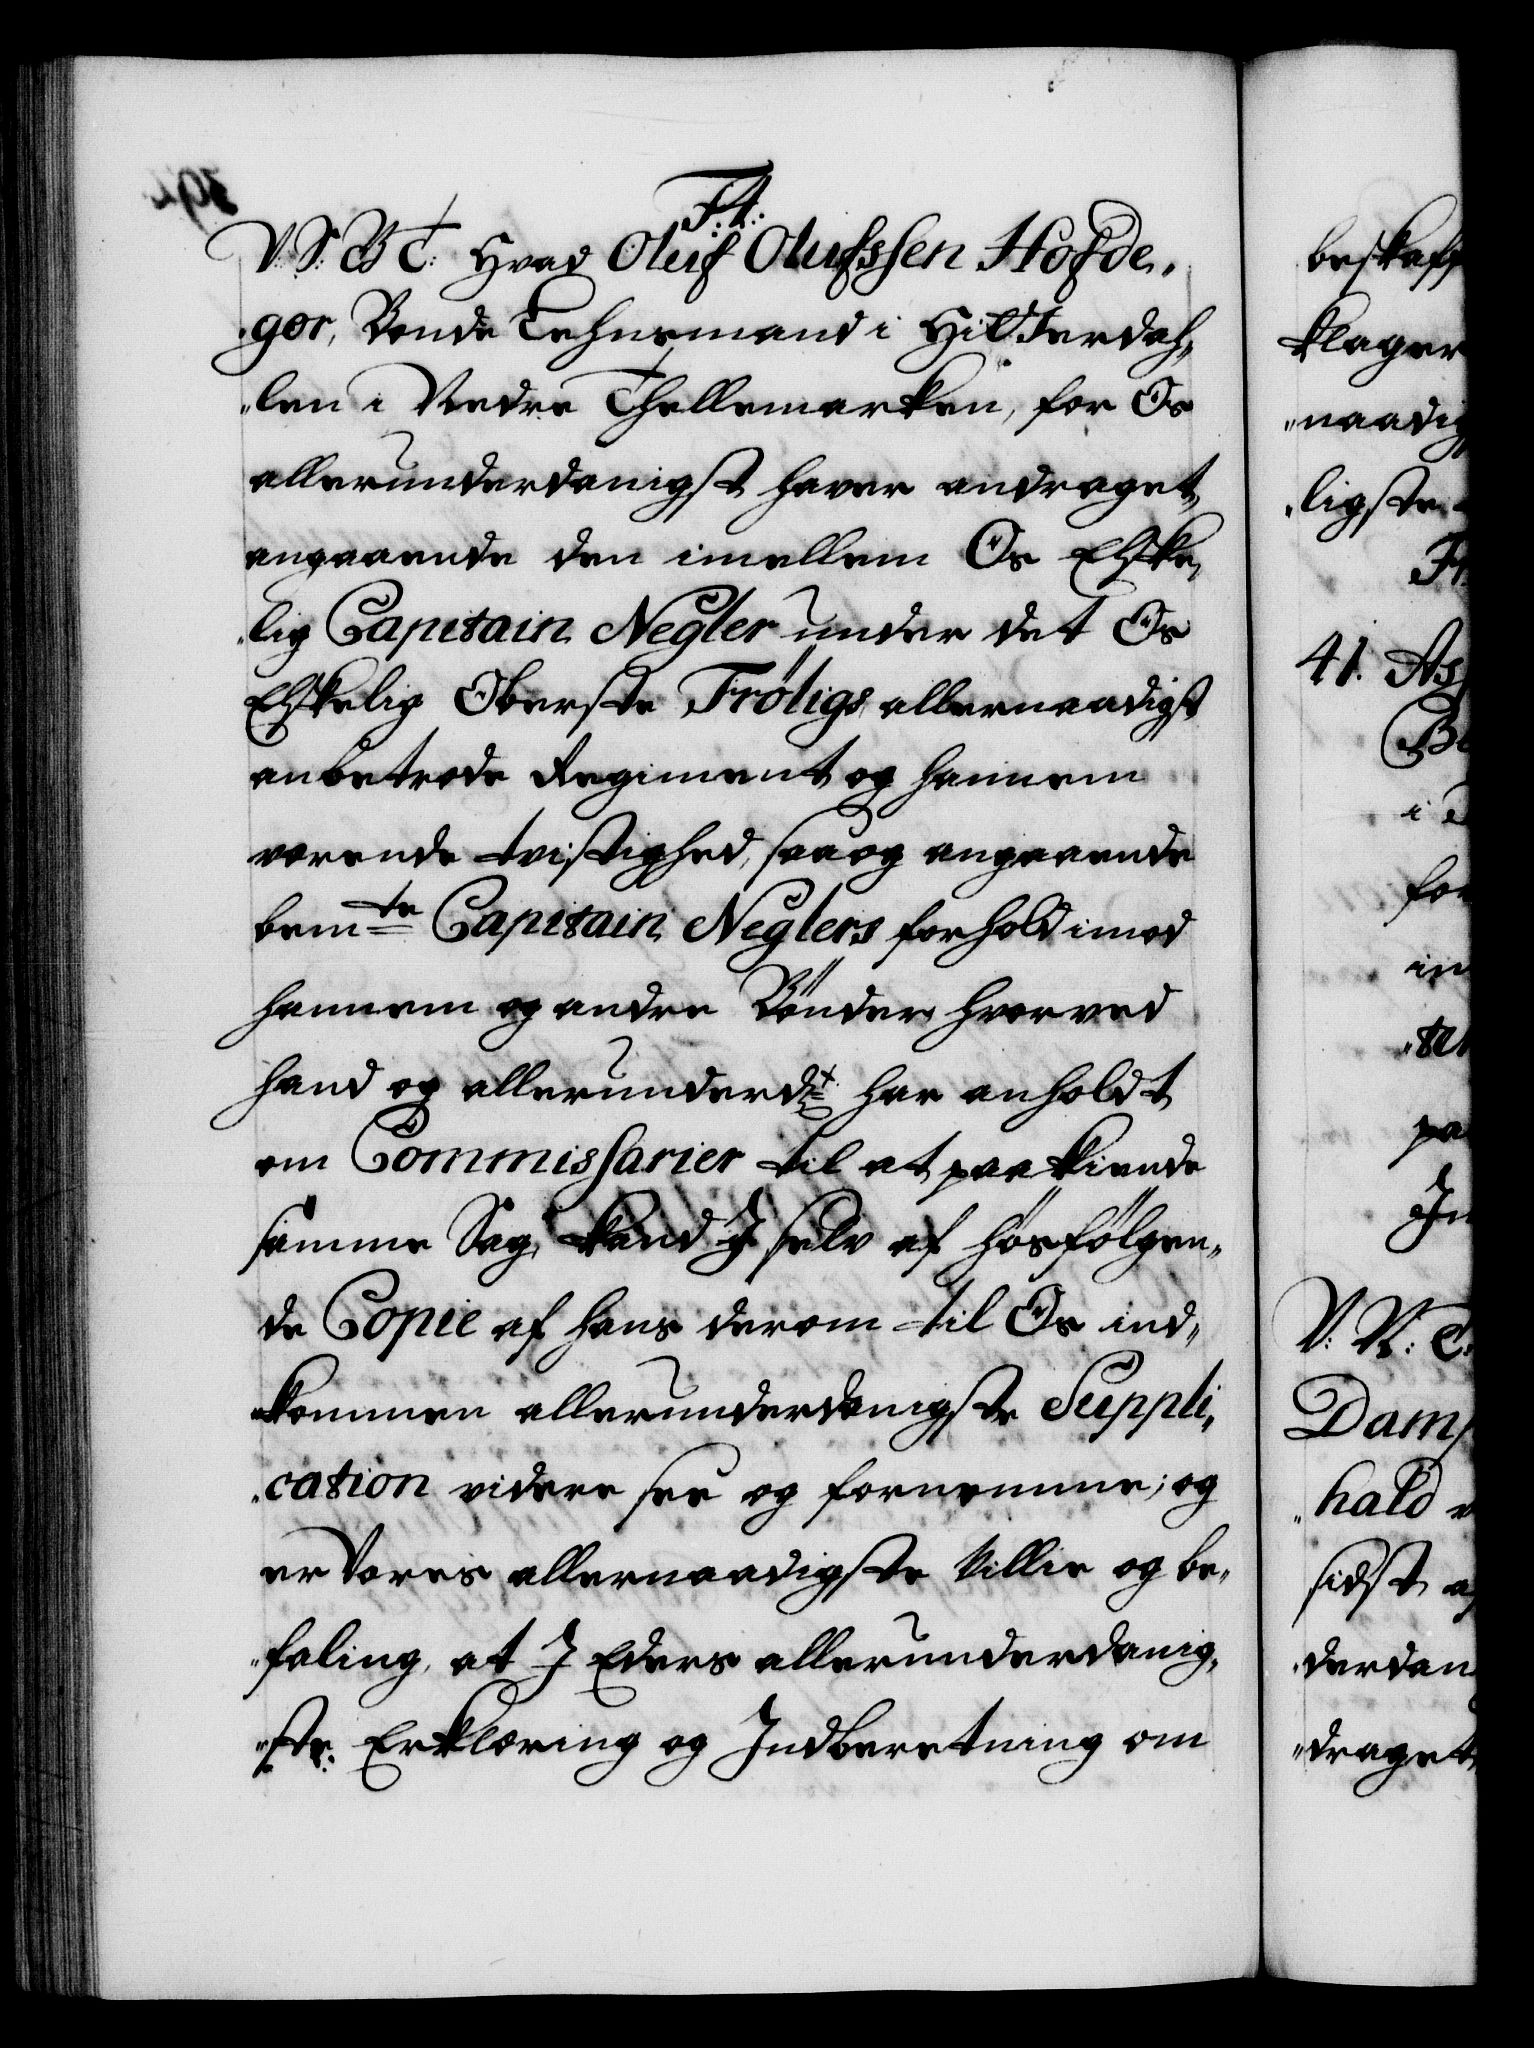 F. 4.
V. S. B T. Hvad Oluf Olufssen Hofde„
„gør, Bonde Lehnsmand i Hitterdah„
„len i Nedre Thellemarken, for Os
allerunderdanigst haver andraget,
angaaende den imellem Os Elske„
„lig Capitain Negler under det Os
Elskelig Oberste Frøligs allernaadigst
anbetroede Regiment og hannem
værende tvistighed, saa og angaaende
bemte Capitain Neglers forhold imod
hannem og andre Bönder hvorved
hand og allerunderdt har anholdt
om Commissarier til at paakiende
samme Sag, kand I selv af hösfölgen„
de Copie af hans derom til Os ind„
kommen allerunderdanigste Suppli„
„cation videre see og fornemme; og
er Vores allernaadigste Villie og be„
„faling, at I Eders allerunderdanig„
„ste Erklæring og Indberetning om
klager
„naadig
„ligste
41.
V.
Dam
„hald
sidst
„derdan
„draget